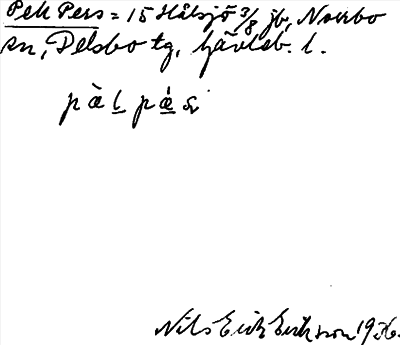 Pell Pers = 15 Hålsjö 3/8 jb, Norrbo
sn, Delsbo tg, Gävleb. l.
pὰl pάs
Nils Erik Eriksson 1936.